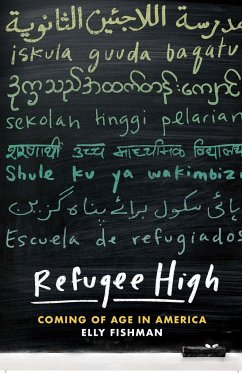 مدرسة اللاجئين الثانوية
iskula guuda baqatu
ဒုက္ခသည်အထက်တန်းကျောင်း
sekolah tinggi pelarian
शरणार्थी उच्च माध्यमिक विद्यालय
Shule ku ya wakimbizi
ہائی سکول برائے پناہ گزین
Escuela de refugiados
Refugee High
COMING OF AGE IN AMERICA
ELLY FISHMAN